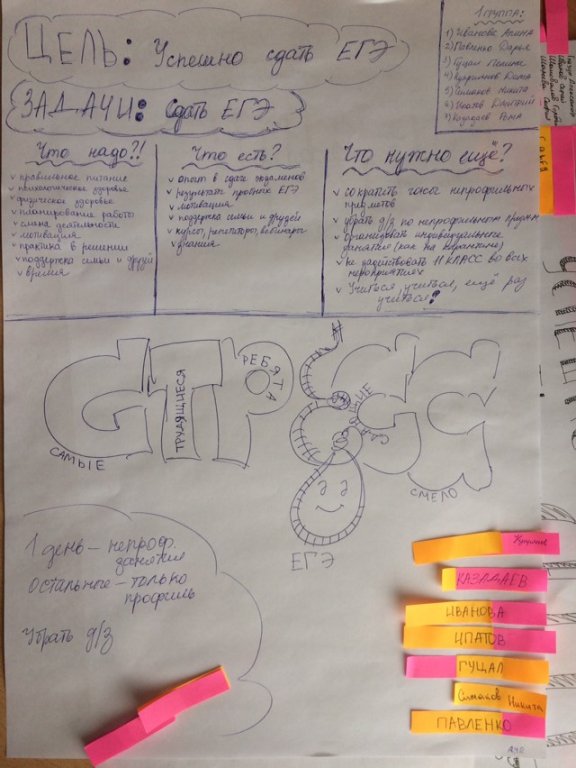 ЦЕЛЬ: Успешно сдать ЕГЭ
ЗАДАЧИ: Сдать ЕГЭ
1 ГРУППА:
1) Иванова Алина
2) Павленко Дарья
3) Гуцал Полина
5) Симаков Никита
6) Ипатов Дмитрий
7) Казадаев Рома
Что надо?!
правильное питание
психологическое здоровье
физическое здоровье
планирование работы
смена деятельности
мотивация
практика в решении
поддержка семьи и друзей
время
Что есть?
опыт в сдаче экзаменов
результаты пробных ЕГЭ
мотивация
поддержка семьи и друзей
курсы, репетиторы, вебинары
знания
Что нужно ещё?
сократить часы непрофильных
предметов
убрать д/з по непрофильном предмет
организовать индивидуальные
занятия (как на карантине)
не задействовать 11 КЛАСС во всех
мероприятиях
Учиться, учиться, ещё раз
учиться!
САМЫЕ
ТРУДЯЩИЕСЯ
РЕБЯТА
СМЕЛО
ЕГЭ
1 день – непроф.
занятия
Остальные – только
профиль
Убрать д/з
КАЗАДАЕВ
ИВАНОВА
ИПАТОВ
ГУЦАЛ
Симаков Никита
ПАВЛЕНКО